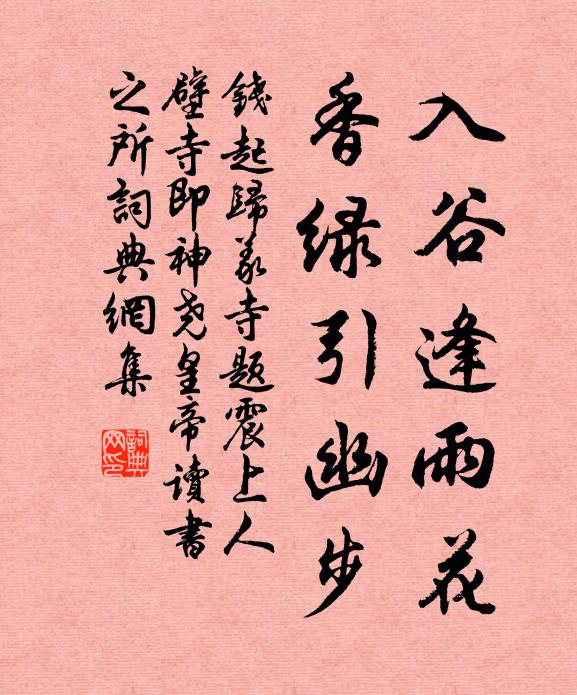 入谷逢雨花
香绿引幽步
錢起歸義寺題震上人
壁寺即神尧皇帝讀書
之所詞典網集
詞典
网印